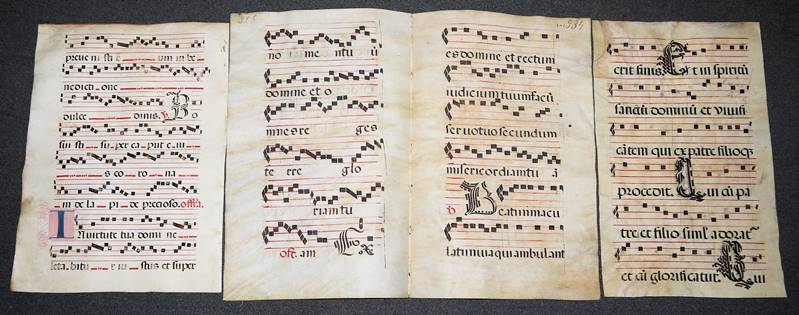 preue nisti e um in be
nedicti one
dulce dinis. Bo
sui sti su per ca pute e iu
s co ro na
m de la pi de precioso. offr̄a.
In uirtute tua domi ne
leta. bitu r iu stus et super
318
no me ntu ū
domine et o
mnes re ges
te rre glo
riam tu
off. am
984
es domine et rectum
iudicium tuum facū
seruo tuo secundum
misericordiam tu ā
Beati inmacu
lati in uia qui ambulant
erit finis. Et in spiritū
sanctū dominū et uiuifi
cātem qui ex patre filioqz
procedit. Qui cū pa
tre et filio simł adorat
et cū glorificatur. Qui